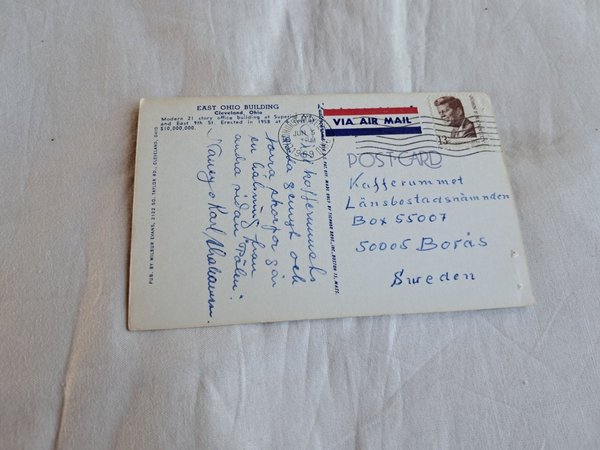 EAST OHIO BUILDING
Cleveland, Ohio
Modern 21 story office building at Superior
and East 9th St. Erected in 1958 at a cost of
$10,000,000.
PUB. BY WILBUR EVANS, 2102 SO. TAYLOR RD., CLEVELAND, OHIO
Till kafferummets
goda gemyt och
torra skorpor går
en hälsning från
andra sidan
Karl
JUN
1969
VIA AIR MAIL
13c
POSTCARD
Kafferummet
Länsbostadsnämnden
Box 55007
50005 Borås
Sweden